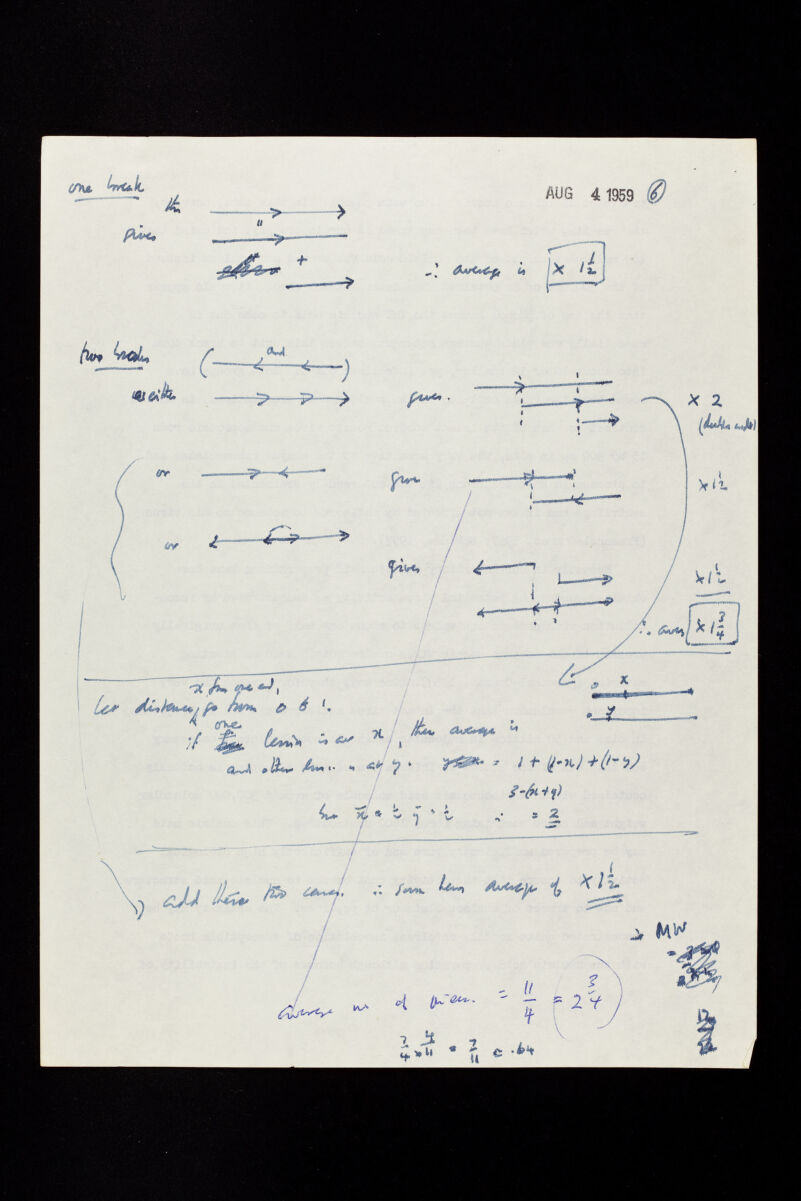 one break
AUG 4 1959 6
this
gives "
+
∴ average is × 1½
two breaks ( and )
as either gives. × 2
(double ended)
or gives × 1½
or gives × 1½
∴ aver × 1¾
x from one end, 0 x
Let distance, go from 0 to 1. 0 y
if one lesion is at x, then average is
and other lesion is at y. = 1 + (1-x) + (1-y)
3-(x+y)
but x̄ = ½ ȳ = ½ ∴ = 2
add these two cases. ∴ sum has average of × 1½
→ MW
average no of pieces. = 11/4 = 2 3/4
7/4 × 4/11 = 7/11 = .64